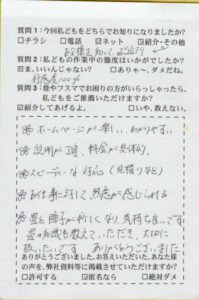 質問1:今回私どもをどちらでお知りになりましたか?
□チラシ □電話 ☑ネット ☑紹介・その他
質問2:私どもの作業中の態度はいかがでしたか?
☑ま、いいんじゃない? □ありゃ~、ダメだね。
好感度100%
質問3:畳やフスマでお困りの方がいらっしゃったら、
私どもをご推薦いただけますか?
☑紹介してあげるよ。 □いや、教えない。
ホームページが楽しい、わかりやすい
説明が丁寧、料金が具体的。
スピーディーな対応(見積りなど)
お仕事に対して熱意が感じられる
畳と障子が新しくなり、気持ち良いです
畳の知識も教えていただき、大切に
扱いたいです ありがとうございました
ありがとうございました。お答えいただいた、あなた様
の声を、弊社資料等に掲載させていただけますか?
□許可する ☑匿名なら □絶対ダメ